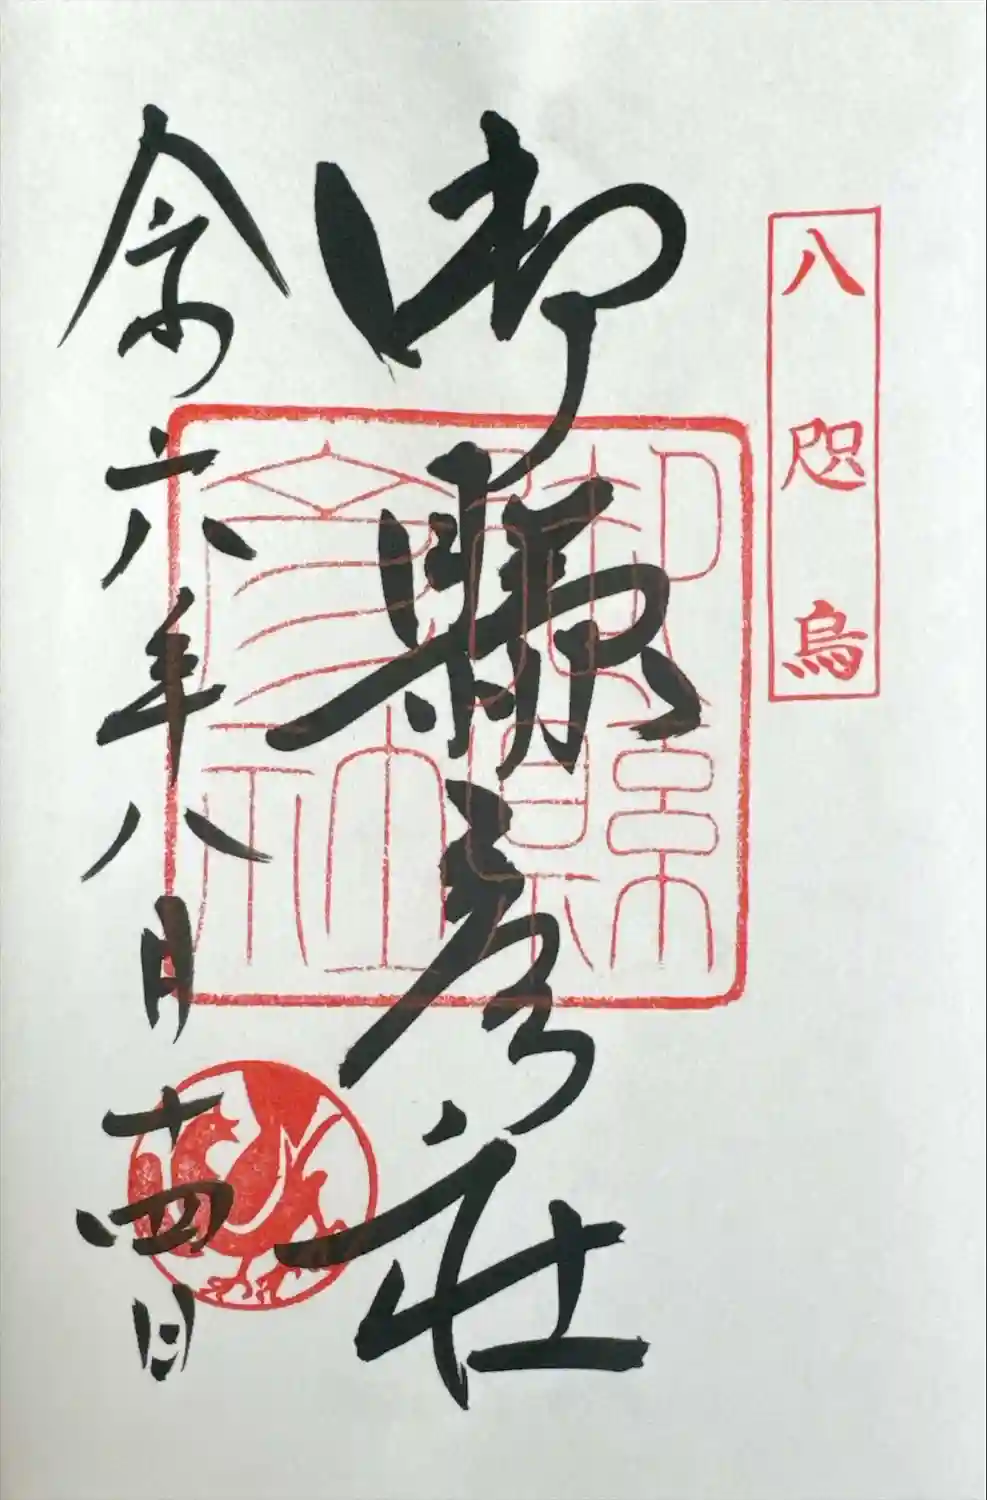 八咫烏
御縣彦社
御縣
彦社
令和六年八月十四日